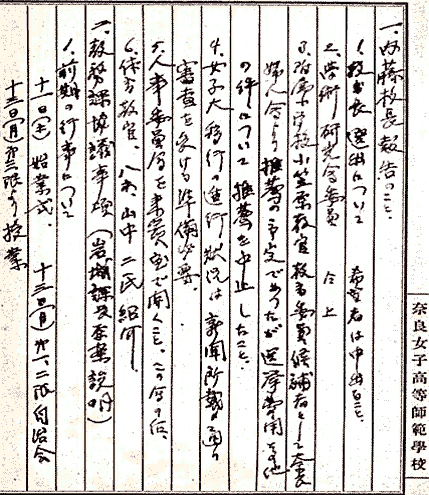 奈良女子高等師範學校
一、内藤校長報告のこと、
1、教官長選出について 希望者は申出ること、
2、学術研究会委員 仝上
3、附属小学校小笠原教官教育委員候補者として奈良
婦人会より推薦の予定であったが選挙費用その他
の件について推薦を中止したこと、
4、女子大移行の進行状況は新聞所載の通り
審査を受ける準備必要、
5、人事委員会を来賓室で開くこと、この会の后、
6、体育教官、八木、山中二氏紹介、
二、教務課協議事項(岩城課長原案説明)
1、前期の行事について
十一日(土)始業式、 十三日(月)第一、二限自治会
十三日(月)第三限より授業